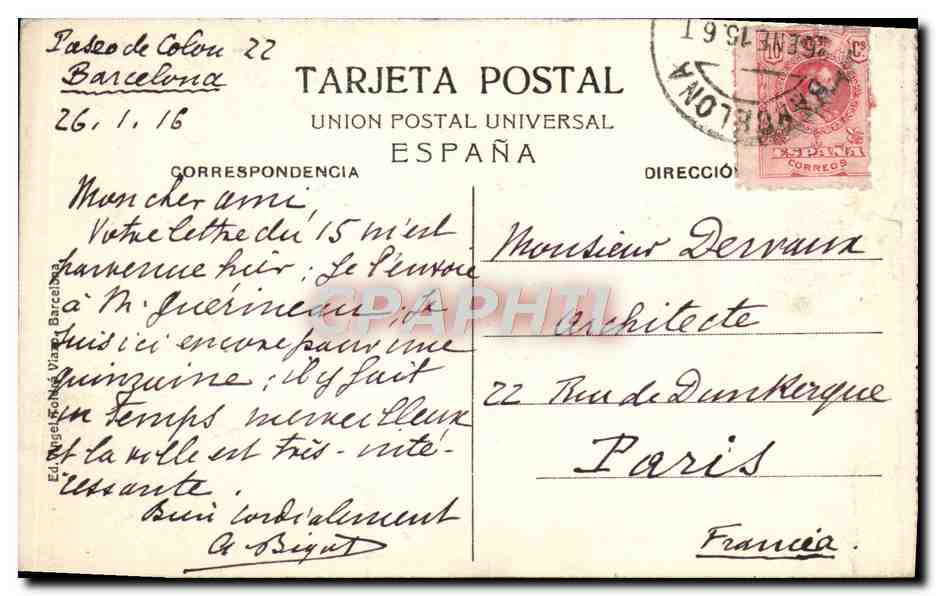 Paseo de Colon 22
Barcelona
26.1.16
TARJETA POSTAL
UNION POSTAL UNIVERSAL
ESPAÑA
CORRESPONDENCIA
Mon cher ami,
Votre lettre du 15 m'est
parvenue hier ; je l'envoie
à M. Guérineau, je
suis ici encore pour une
quinzaine ; il y fait
un temps merveilleux
et la ville est très-inté-
ressante.
Bien cordialement
A Bigot
DIRECCIÓ
Monsieur Dervaux
Architecte
22 Rue de Dunkerque
Paris
Francia.
BARCELONA
26 ENE 15.6T
10 Cs
ESPAÑA
CORREOS
Barcelona
CPAPHIL